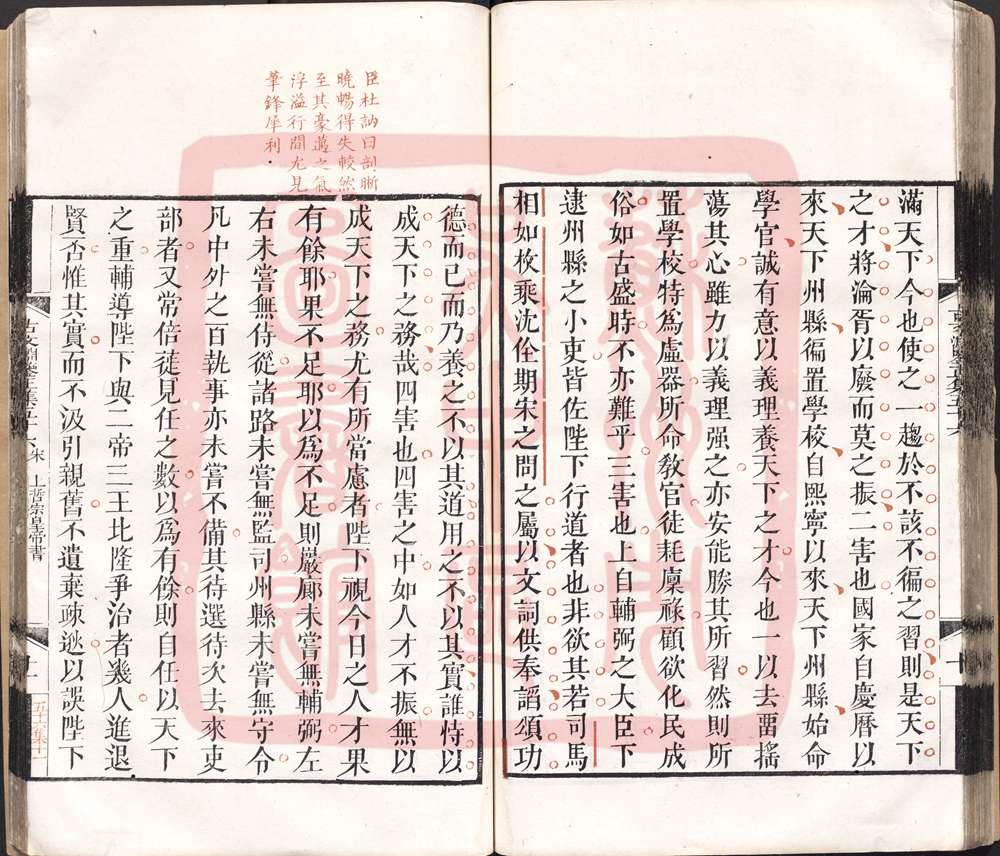 滿天下今也使之一趨於不該不徧之習則是天下
之才將淪胥以廢而莫之振二害也國家自慶曆以
來天下州縣徧置學校自熙寧以來天下州縣始命
學官誠有意以義理養天下之才今也一以去畱搖
蕩其心雖力以義理强之亦安能勝其所習然則所
置學校特爲虛器所命敎官徒耗廩祿顧欲化民成
俗如古盛時不亦難乎三害也上自輔弼之大臣下
逮州縣之小吏皆佐陛下行道者也非欲其若司馬
相如枚乘沈佺期宋之問之屬以文詞供奉謟頌功
臣杜訥曰剖晰
曉暢得失較然
至其豪邁之氣
浮溢行間尤見
筆鋒犀利
德而已而乃養之不以其道用之不以其實誰恃以
成天下之務哉四害也四害之中如人才不振無以
成天下之務尤有所當慮者陛下視今日之人才果
有餘耶果不足耶以爲不足則嚴廊未嘗無輔弼左
右未嘗無侍從諸路未嘗無監司州縣未嘗無守令
凡中外之百執事亦未嘗不備其待選待次去來吏
部者又常倍蓰見任之數以爲有餘則自任以天下
之重輔導陛下與二帝三王比隆爭治者幾人進退
賢否惟其實而不汲引親舊不遺棄疎逖以誤陛下
古文淵鑒正集五十六 宋 上哲宗皇帝書 十一